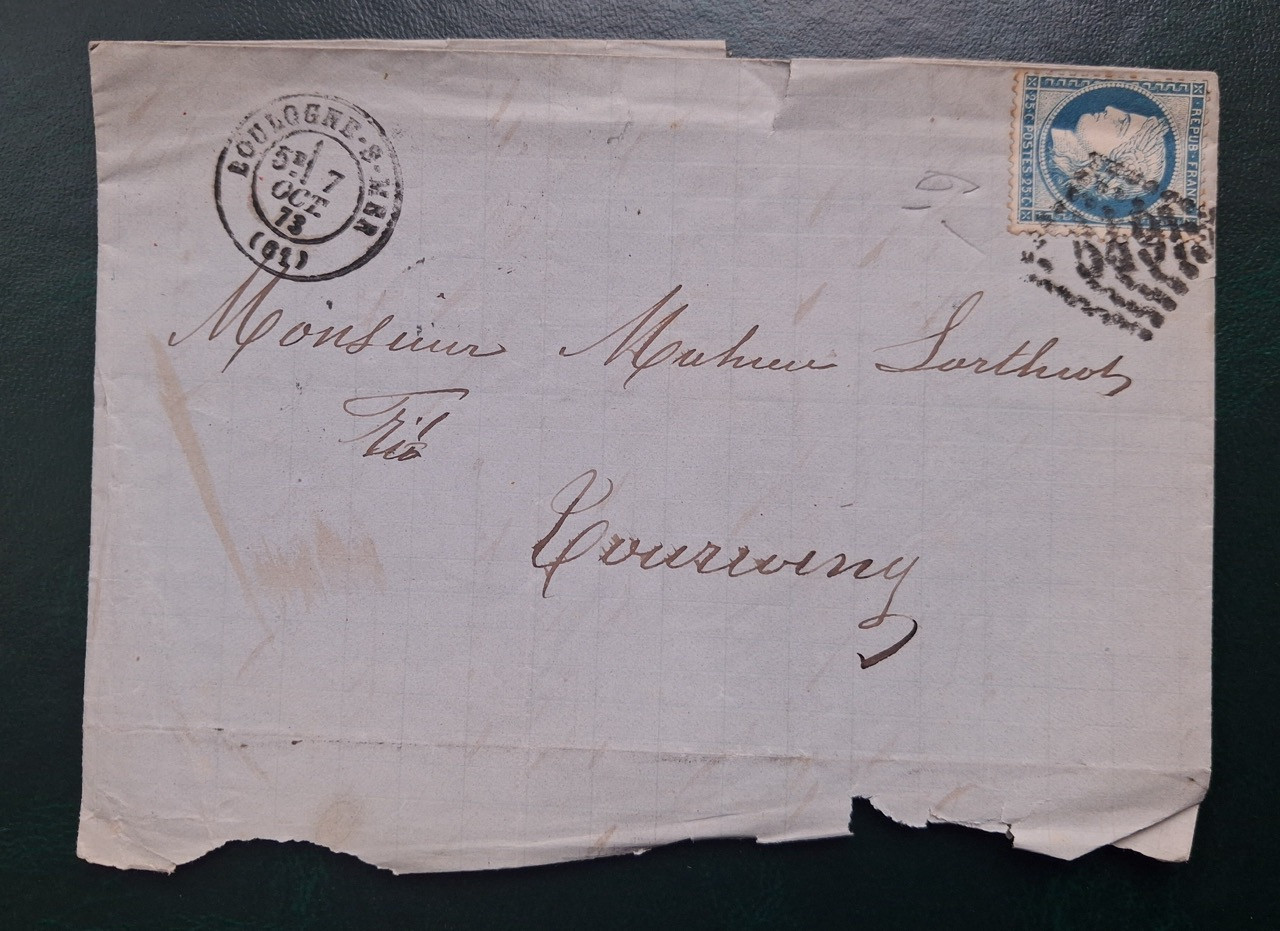 BOULOGNE-S-MER
5E/ 7
OCT.
73
(61)
REPUB · FRANC
25 C POSTES 25 C
Monsieur Mathieu Lorthiois
Tourcoing